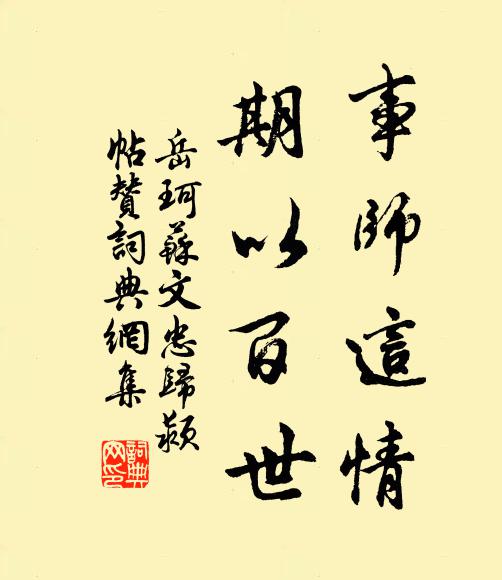 事師這情
期以百世
岳珂蘇文忠歸潁
帖贊詞典網集
詞典網印